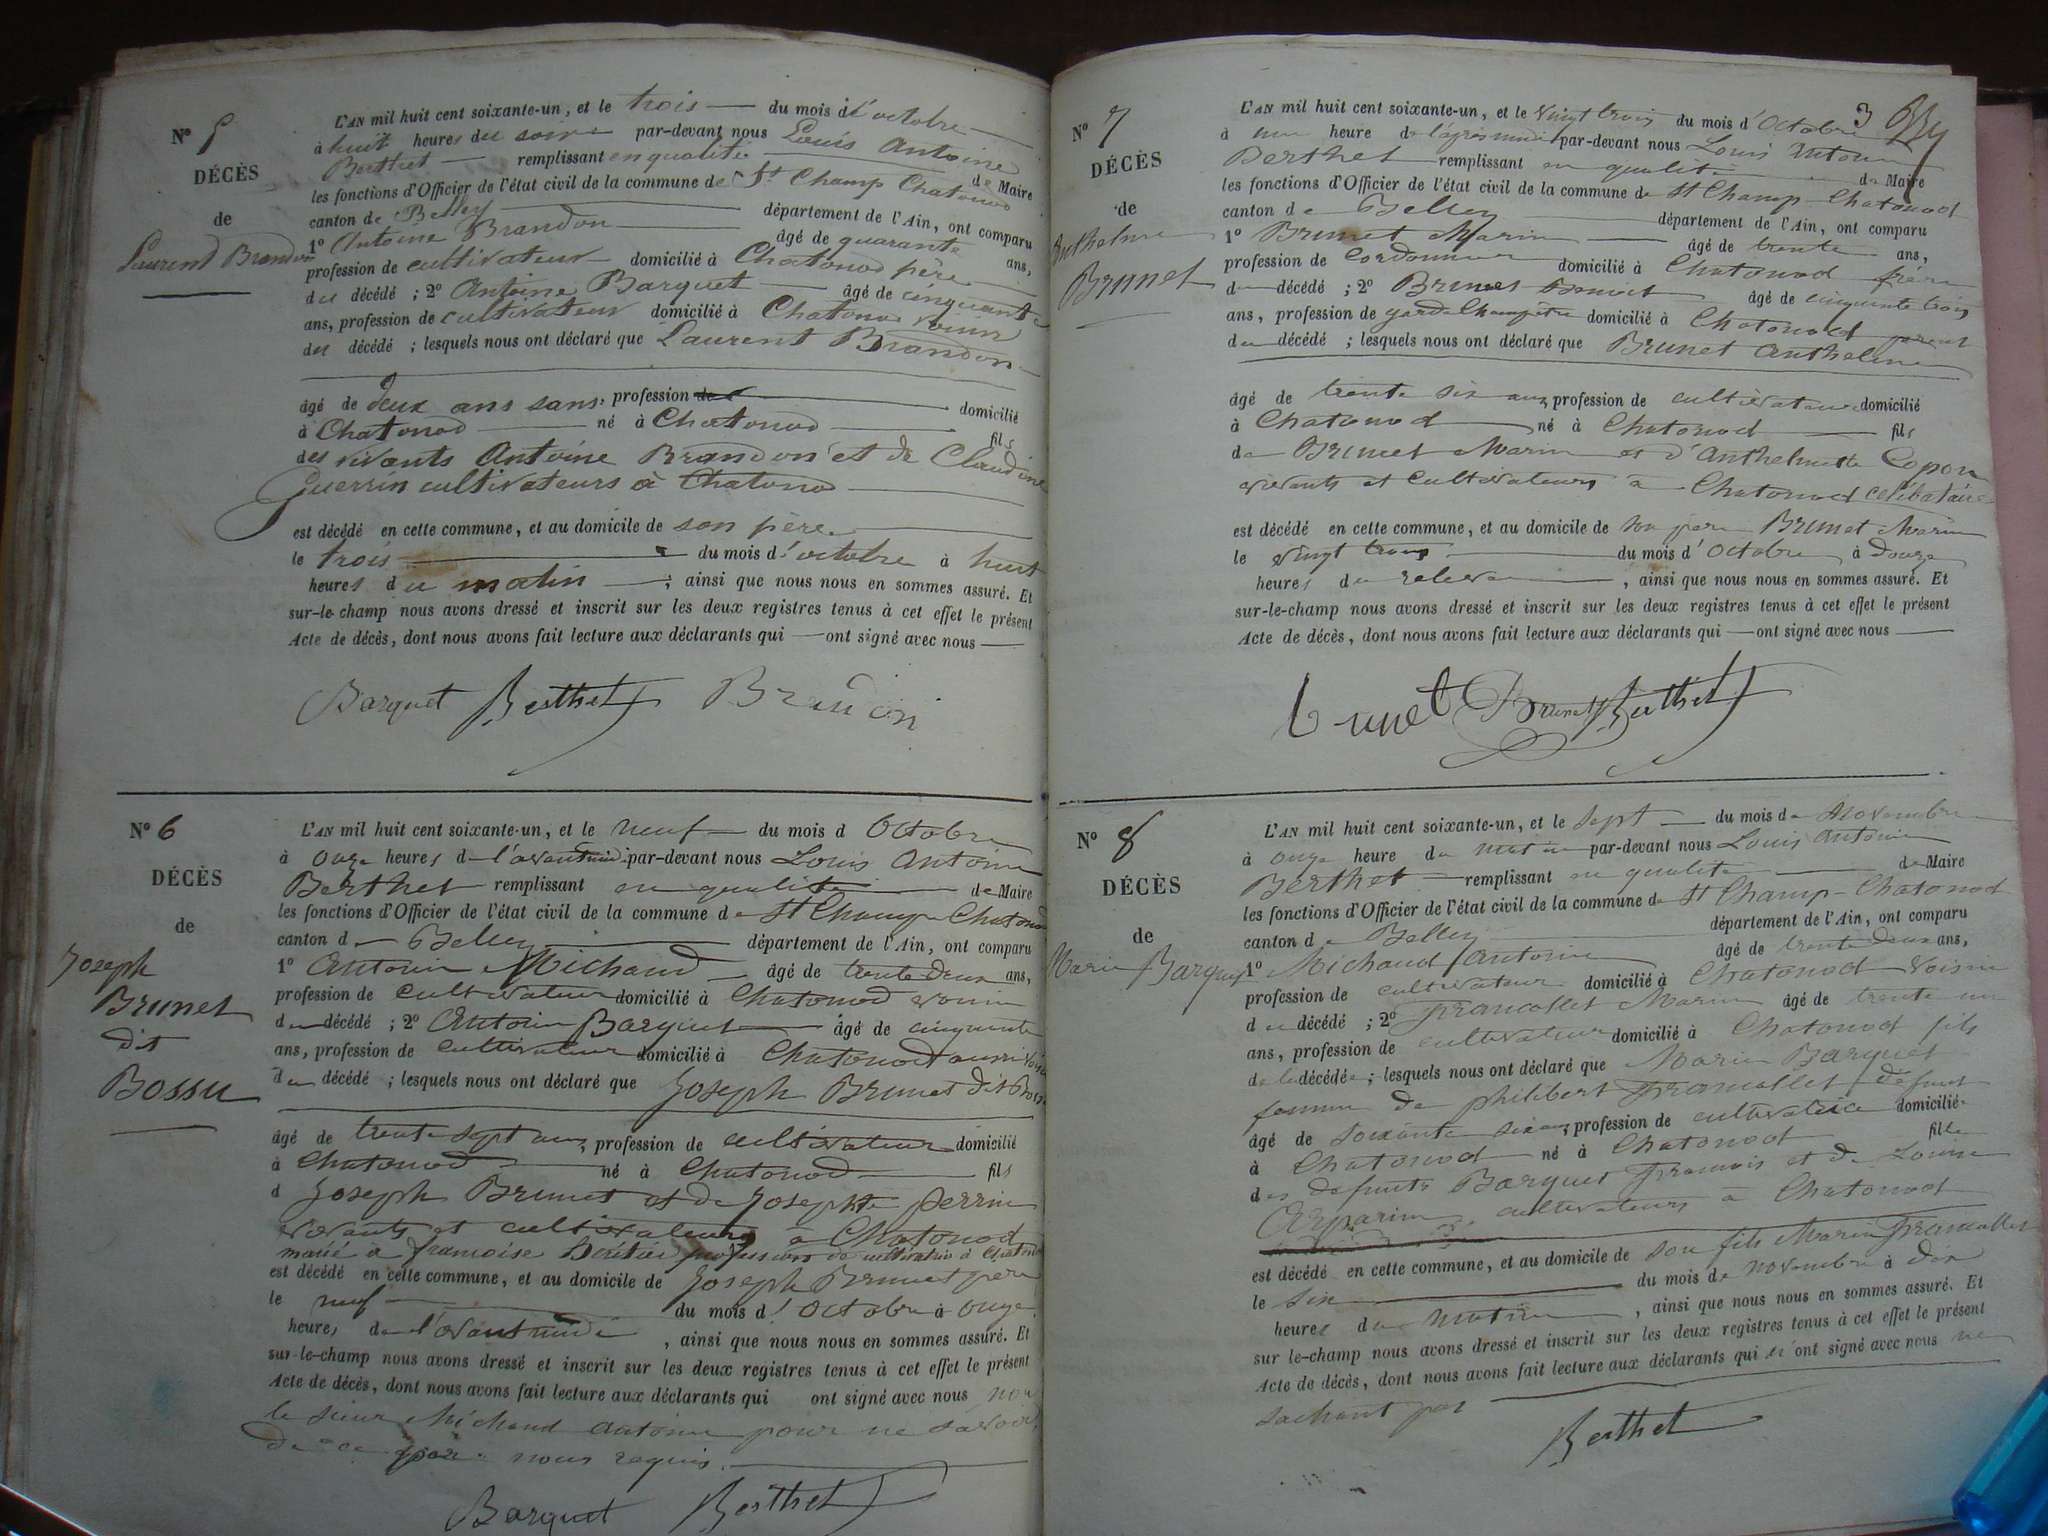 N° 5
DÉCÈS
de
Laurent Brandon
L'AN mil huit cent soixante-un, et le trois du mois d'octobre
à huit heures du soir par-devant nous Louis Antoine
Berthet remplissant en qualité de Maire
les fonctions d'Officier de l'état civil de la commune de St Champ Chatonod
canton de Belley département de l'Ain, ont comparu
1° Antoine Brandon âgé de quarante ans,
profession de cultivateur domicilié à Chatonod père
du décédé ; 2° Antoine Barquet âgé de cinquante
ans, profession de cultivateur domicilié à Chatonod voisin
du décédé ; lesquels nous ont déclaré que Laurent Brandon
âgé de deux ans sans profession domicilié
à Chatonod né à Chatonod fils
des vivants Antoine Brandon et de Claudine
Guerrin cultivateurs à Chatonod
est décédé en cette commune, et au domicile de son père
le trois du mois d'octobre à huit
heures du matin ; ainsi que nous nous en sommes assuré. Et
sur-le-champ nous avons dressé et inscrit sur les deux registres tenus à cet effet le présent
Acte de décès, dont nous avons fait lecture aux déclarants qui ont signé avec nous
Barquet Berthet Brandon
N° 6
DÉCÈS
de
Joseph
Brunet
dit
Bossu
L'AN mil huit cent soixante-un, et le neuf du mois d Octobre
à onze heures de l'avant midi par-devant nous Louis Antoine
Berthet remplissant en qualité de Maire
les fonctions d'Officier de l'état civil de la commune de St Champ Chatonod
canton de Belley département de l'Ain, ont comparu
1° Antoine Michaud âgé de trente deux ans,
profession de cultivateur domicilié à Chatonod voisin
du décédé ; 2° Antoine Barquet âgé de cinquante
ans, profession de cultivateur domicilié à Chatonod aussi voisin
du décédé ; lesquels nous ont déclaré que Joseph Brunet dit Bossu
âgé de trente sept ans, profession de cultivateur domicilié
à Chatonod né à Chatonod fils
d Joseph Brunet et de Josephte perrin
vivants et cultivateurs à Chatonod
marié à françoise héritier profession de cultivatrice à Chatonod
est décédé en cette commune, et au domicile de Joseph Brunet père
le neuf du mois d'Octobre à onze
heures de l'avant midi, ainsi que nous nous en sommes assuré. Et
sur-le-champ nous avons dressé et inscrit sur les deux registres tenus à cet effet le présent
Acte de décès, dont nous avons fait lecture aux déclarants qui ont signé avec nous non
le sieur Michaud Antoine pour ne savoir
de ce par nous requis.
Barquet Berthet
3
N° 7
DÉCÈS
de
Anthelme
Brunet
L'AN mil huit cent soixante-un, et le vingt trois du mois d'Octobre
à une heure de l'après midi par-devant nous Louis Antoine
Berthet remplissant en qualité de Maire
les fonctions d'Officier de l'état civil de la commune de St Champ-Chatonod
canton de Belley département de l'Ain, ont comparu
1° Brunet Marin âgé de trente ans,
profession de Cordonnier domicilié à Chatonod frère
du décédé ; 2° Brunet Benoit âgé de cinquante trois
ans, profession de garde Champêtre domicilié à Chatonod parent
du décédé ; lesquels nous ont déclaré que Brunet Anthelme
âgé de trente six ans, profession de cultivateur domicilié
à Chatonod né à Chatonod fils
de Brunet Marin et d'Anthelmette Copon
vivants et cultivateurs à Chatonod célibataire
est décédé en cette commune, et au domicile de son père Brunet Marin
le vingt trois du mois d'Octobre à douze
heures du, ainsi que nous nous en sommes assuré. Et
sur-le-champ nous avons dressé et inscrit sur les deux registres tenus à cet effet le présent
Acte de décès, dont nous avons fait lecture aux déclarants qui ont signé avec nous
brunet Brunet Berthet
N° 8
DÉCÈS
de
Marie Barquet
L'AN mil huit cent soixante-un, et le sept du mois de Novembre
à onze heure du matin par-devant nous Louis Antoine
Berthet remplissant en qualité de Maire
les fonctions d'Officier de l'état civil de la commune de St Champ-Chatonod
canton de Belley département de l'Ain, ont comparu
1° Michaud Antoine âgé de trente deux ans,
profession de cultivateur domicilié à Chatonod voisin
du décédé ; 2° Francollet Marin âgé de trente un
ans, profession de cultivateur domicilié à Chatonod fils
de la décédée ; lesquels nous ont déclaré que Marie Barquet
femme de philibert Francollet défunt
âgé de soixante six ans, profession de cultivatrice domicilié
à Chatonod né à Chatonod fille
des défunts Barquet François et de Louise
cultivateurs à Chatonod
est décédé en cette commune, et au domicile de son fils Marin Francollet
le six du mois de novembre à dix
heures du matin, ainsi que nous nous en sommes assuré. Et
sur le-champ nous avons dressé et inscrit sur les deux registres tenus à cet effet le présent
Acte de décès, dont nous avons fait lecture aux déclarants qui n'ont signé avec nous ne
sachant pas
Berthet